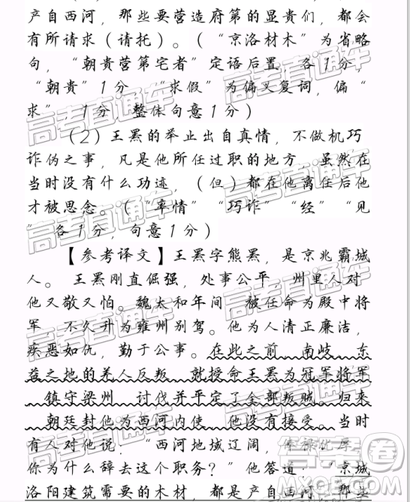 产自西河，那些要营造府第的显贵们，都会
有所请求（请托）。（“京洛材木”为省略
句，“朝贵营第宅者”定语后置，各1分，
“朝贵”1分，“求假”为偏义复词，偏“
求”，1分，整体句意1分）
（2）王罴的举止出自真情，不做机巧
诈伪之事，凡是他所任过职的地方，虽然在
当时没有什么功迹，（但）都在他离任后他
才被思念。（“率情”“巧诈”“经”“见
各1分，句意1分）
【参考译文】王罴字熊罴，是京兆霸城
人。王罴刚直倔强，处事公平，州里人对
他又敬又怕。魏太和年间，被任命为殿中将
军，不久升为雍州别驾。他为人清正廉洁，
疾恶如仇，勤于公事。在此之前，南岐、东
益之地的羌人反叛，就授命王罴为冠军将军
，镇守梁州，讨伐并平定了全部叛贼，归来
，朝廷封他为西河内使，他没有接受。当时
有人对他说：“西河地域辽阔，俸禄优厚，
你为什么辞去这个职务？”他答道：“京城
洛阳建筑需要的木材，都是产自西河，那些
高考直通车